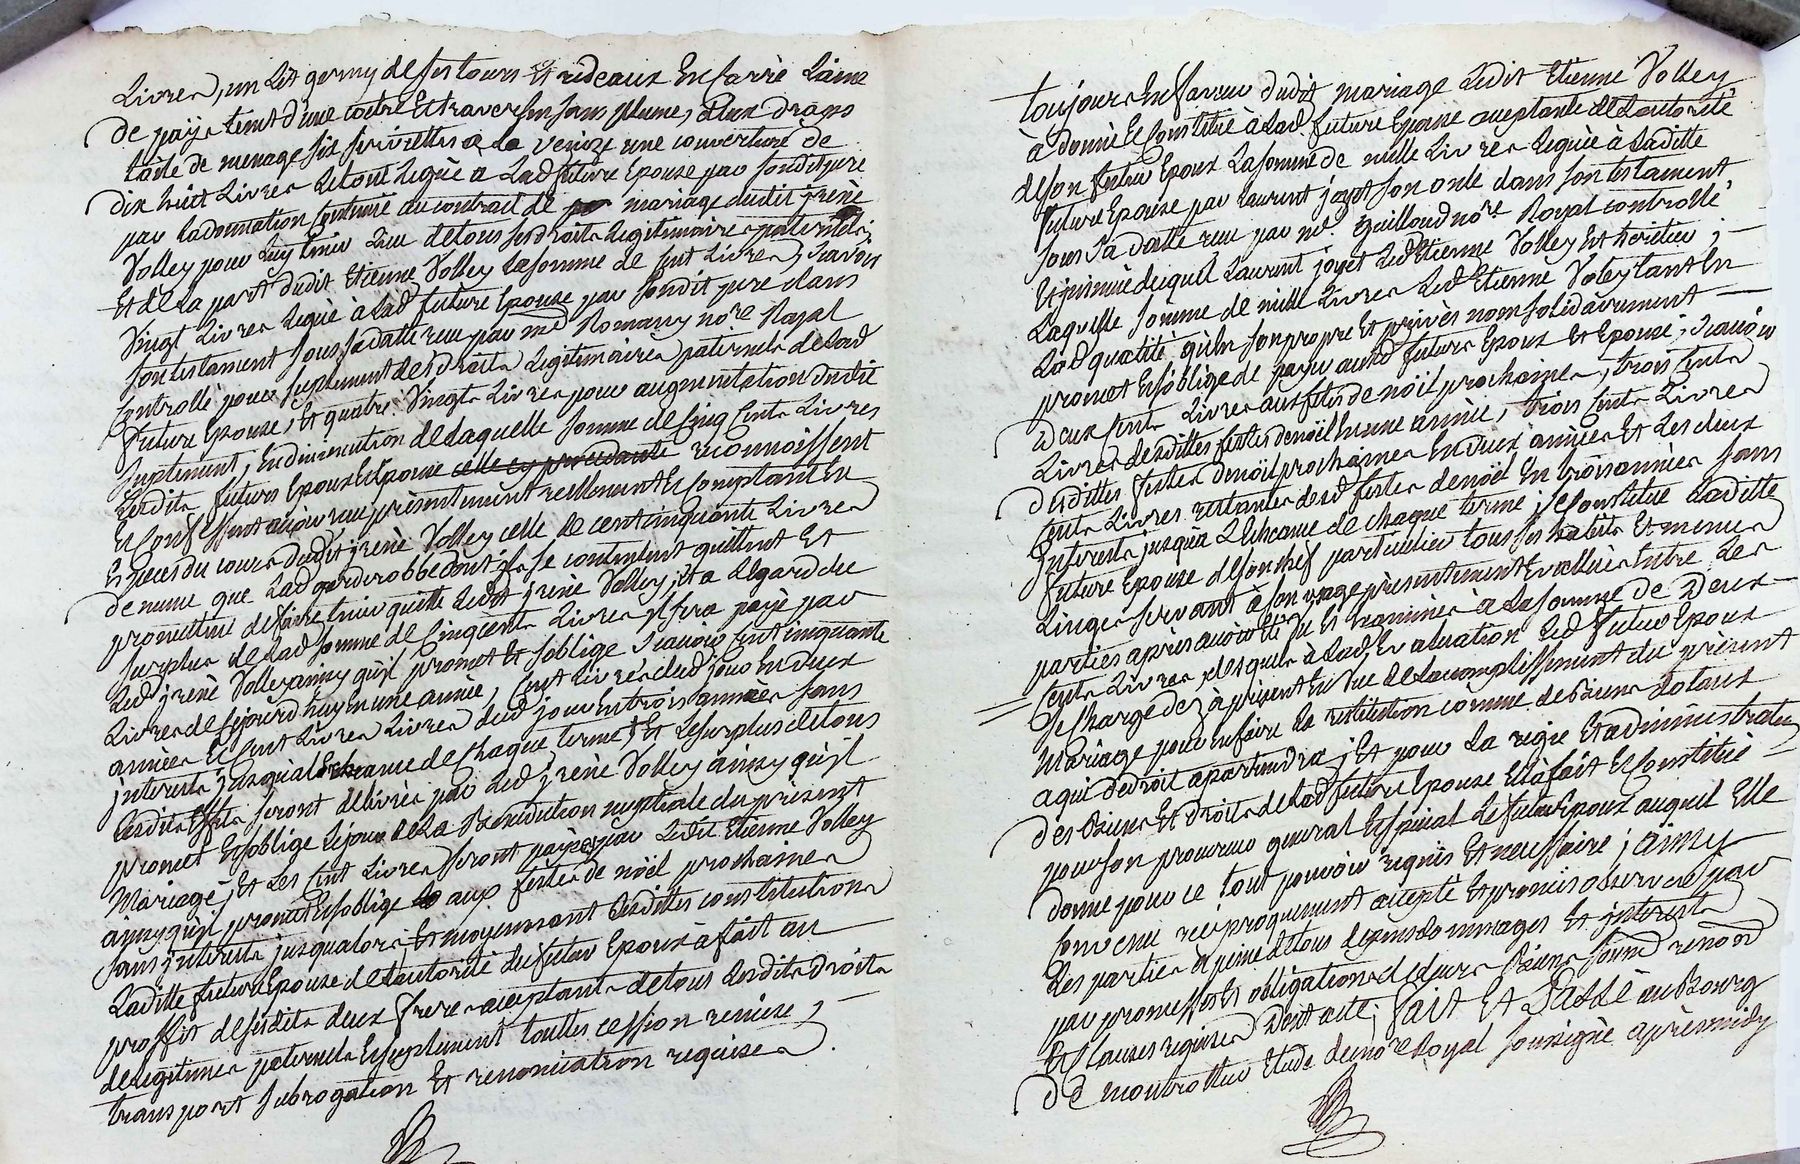 Livres, un Lit garny de ses tours Et rideaux En sarré Laine
de païs teint d'une coitre Et traversin sans plume, deux draps
toile de menage six serviettes à La venize une couverture de
dix huit Livres Le tout Legüé a Lad future Epouse par sondit pere
par La donnation Contenüe au contrait de mariage dudit jrené
Volley pour Luy tenir Lieu de tous ses droits Legitimaires paternels,
Et de La part dudit Etienne Volley La somme de Cent Livres, scavoir
Vingt Livres Legüé à Lad future Epouse par sondit pere dans
son testament sous sa datte reçu par me Romany nore Royal
Controllé pour suplement des droits Legitimaires paternels de Lad
future Epouse, Et quatre Vingts Livres pour augmentation dudit
suplement, En diminution de Laquelle somme de Cinq Cents Livres
Lesdits futurs Epoux Et Epouse celle cy procedante reconnoissent
Et Confessent avoir reçu présentement réellement Et Comptant En
Espéces du cours dudit jrené Volley celle de cent cinquante Livres
de meme que Lad garderobbe dont ils se contentent quittent Et
promettent de faire tenir quitte Ledit jrené Volley; Et a L'egard du
surplus de Lad somme de Cinq cents Livres jl sera payé par
Led jrené Volley ainsy qu'jl promet Et s'oblige scavoir Cent cinquante
Livres de cejourd'huy En une année, Cent Livres dud jour En deux
années Et Cent Livres dud jour En trois années sans
jnterests jusqua L'Echeance de Chaque terme Et Le surplus de tous
Lesdits Effets seront délivrés par Led jrené Volley ainsy qu'jl
promet Et s'oblige Le jour de La Benediction nuptiale du présent
Mariage; Et Les Cent Livres seront payés par Ledit Etienne Volley
ainsy qu'jl promet Et s'oblige aux festes de noël prochaines
sans jnterests jusqualors Et moyennant Lesdittes constitutions
Laditte future Epouse de L'autorité du futur Epoux a fait au
proffit de sesdits deux freres acceptants de tous Lesdits droits
de Legitimes paternels Et suplement touttes cession remise,
transport subrogation Et renonciation requises.
toujours En faveur dudit mariage Ledit Etienne Volley
à donné Et Constitüé à Lad future Epouse acceptante de L'autorité
de son futur Epoux La somme de mille Livres Legüée à Laditte
future Epouse par Laurent joyet son oncle dans son testament
sous sa datte reçu par me. Guilloud nore Royal controllé
Et jnsinüé duquel Laurent joyet Led Etienne Volley Est heritier;
Laquelle somme de mille Livres Led Etienne Volley tant En
Lad qualité qu'En son propre Et privés nom solidairement
promet Et s'oblige de payer auxd futurs Epoux Et Epouse; scavoir
deux cents Livres aux fetes de noël prochaines, trois Cents
Livres desdittes festes de noël En une année, trois Cents Livres
desdittes festes de noël prochaines En deux années Et Les deux
Cents Livres restantes desd festes de noël En trois années sans
jnterests jusqua L'Echeance de chaque terme; se Constitüe Laditte
future Epouse de son chef particulier tous ses habits Et menus
Linges servant à son usage présentement Evallüés Entre Les
parties après avoir Eté vû Et Examinés à La somme de Deux
Cents Livres, desquels à Lad Evaluation Led futur Epoux
se Charge dez à présent En vue de L'accomplissement du présent
Mariage pour En faire La restitution comme de Biens dotaux
a qui de droit apartiendra; Et pour La regie Et administration
des Biens Et droits de Lad future Epouse Elle à fait Et Constitüé
pour son procureur general Et special Le futur Epoux auquel Elle
donne pour ce tout pouvoir requis Et necessaire; ainsy
Convenu reciproquement accepté Et promis observer par
Les parties à peine de tous depens dommages Et jnterests
par promesses Et obligations de Leurs Biens soumd renond
Et Clauses requises Dont acte; Fait Et Passé au Bourg
de montrottier Etude de nore Royal soussigné après midy